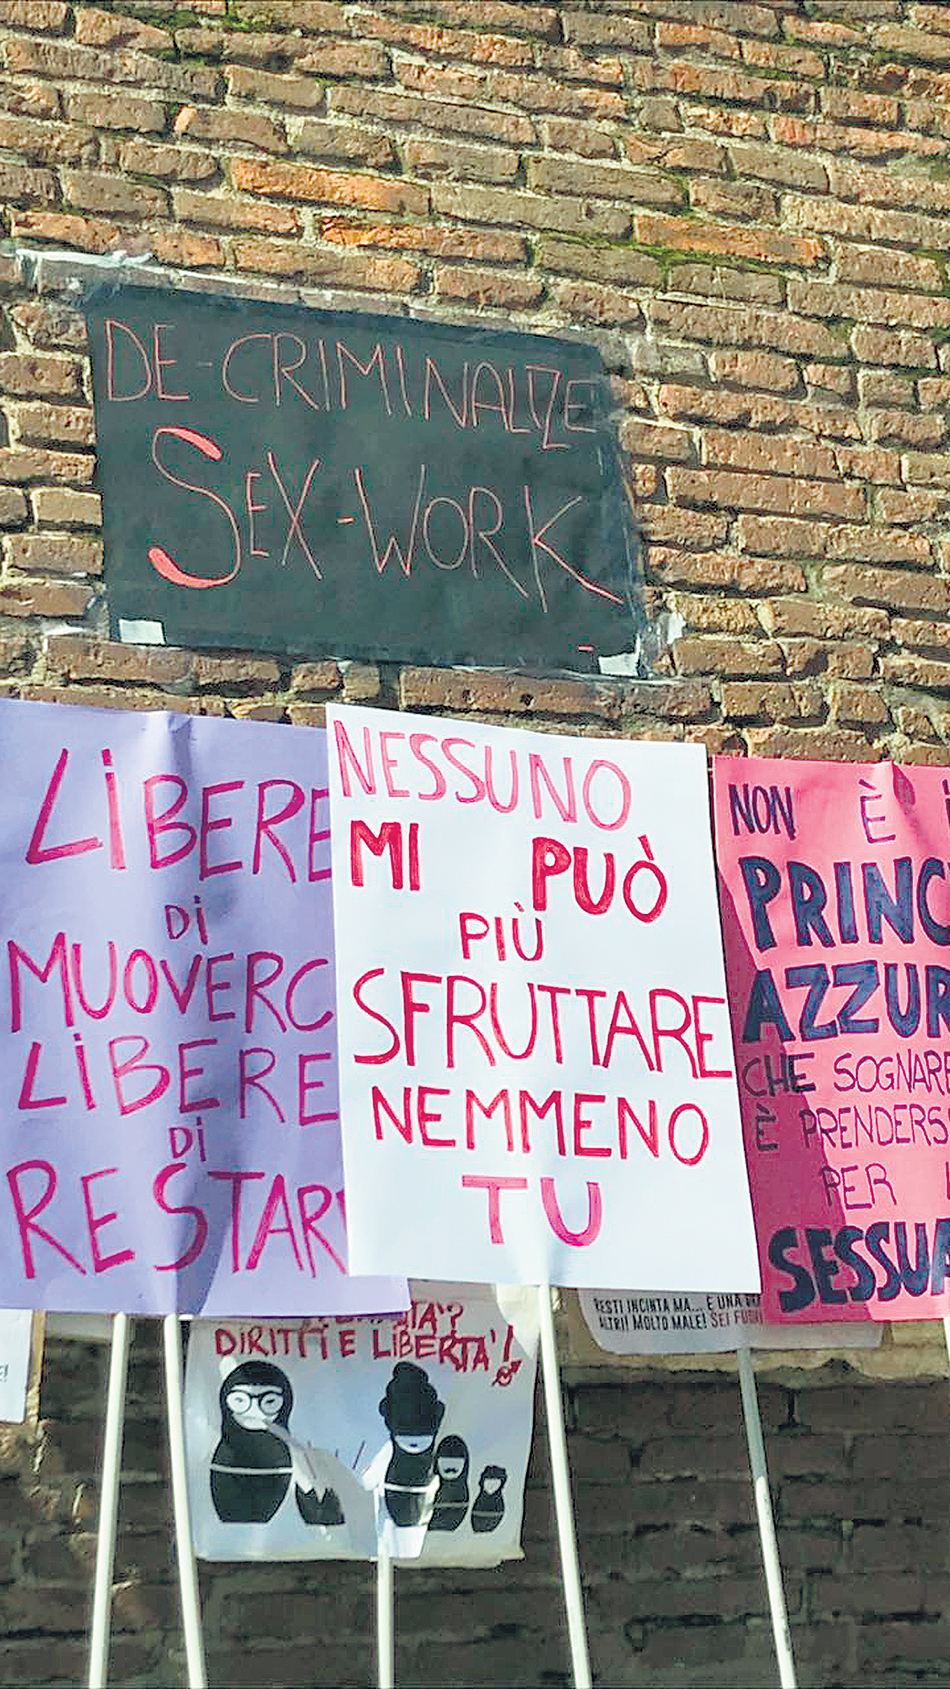 DE-CRIMINALIZE
SEX-WORK
LIBERE
DI
MUOVERC
LIBERE
DI
RESTAR
NESSUNO
MI PUÒ
PIÙ
SFRUTTARE
NEMMENO
TU
NON È
PRINC
AZZUR
CHE SOGNAR
È PRENDERS
PER
SESSUA
DIRITTI E LIBERTA'!
RESTI INCINTA MA... È UNA
ALTRI! MOLTO MALE! SEI